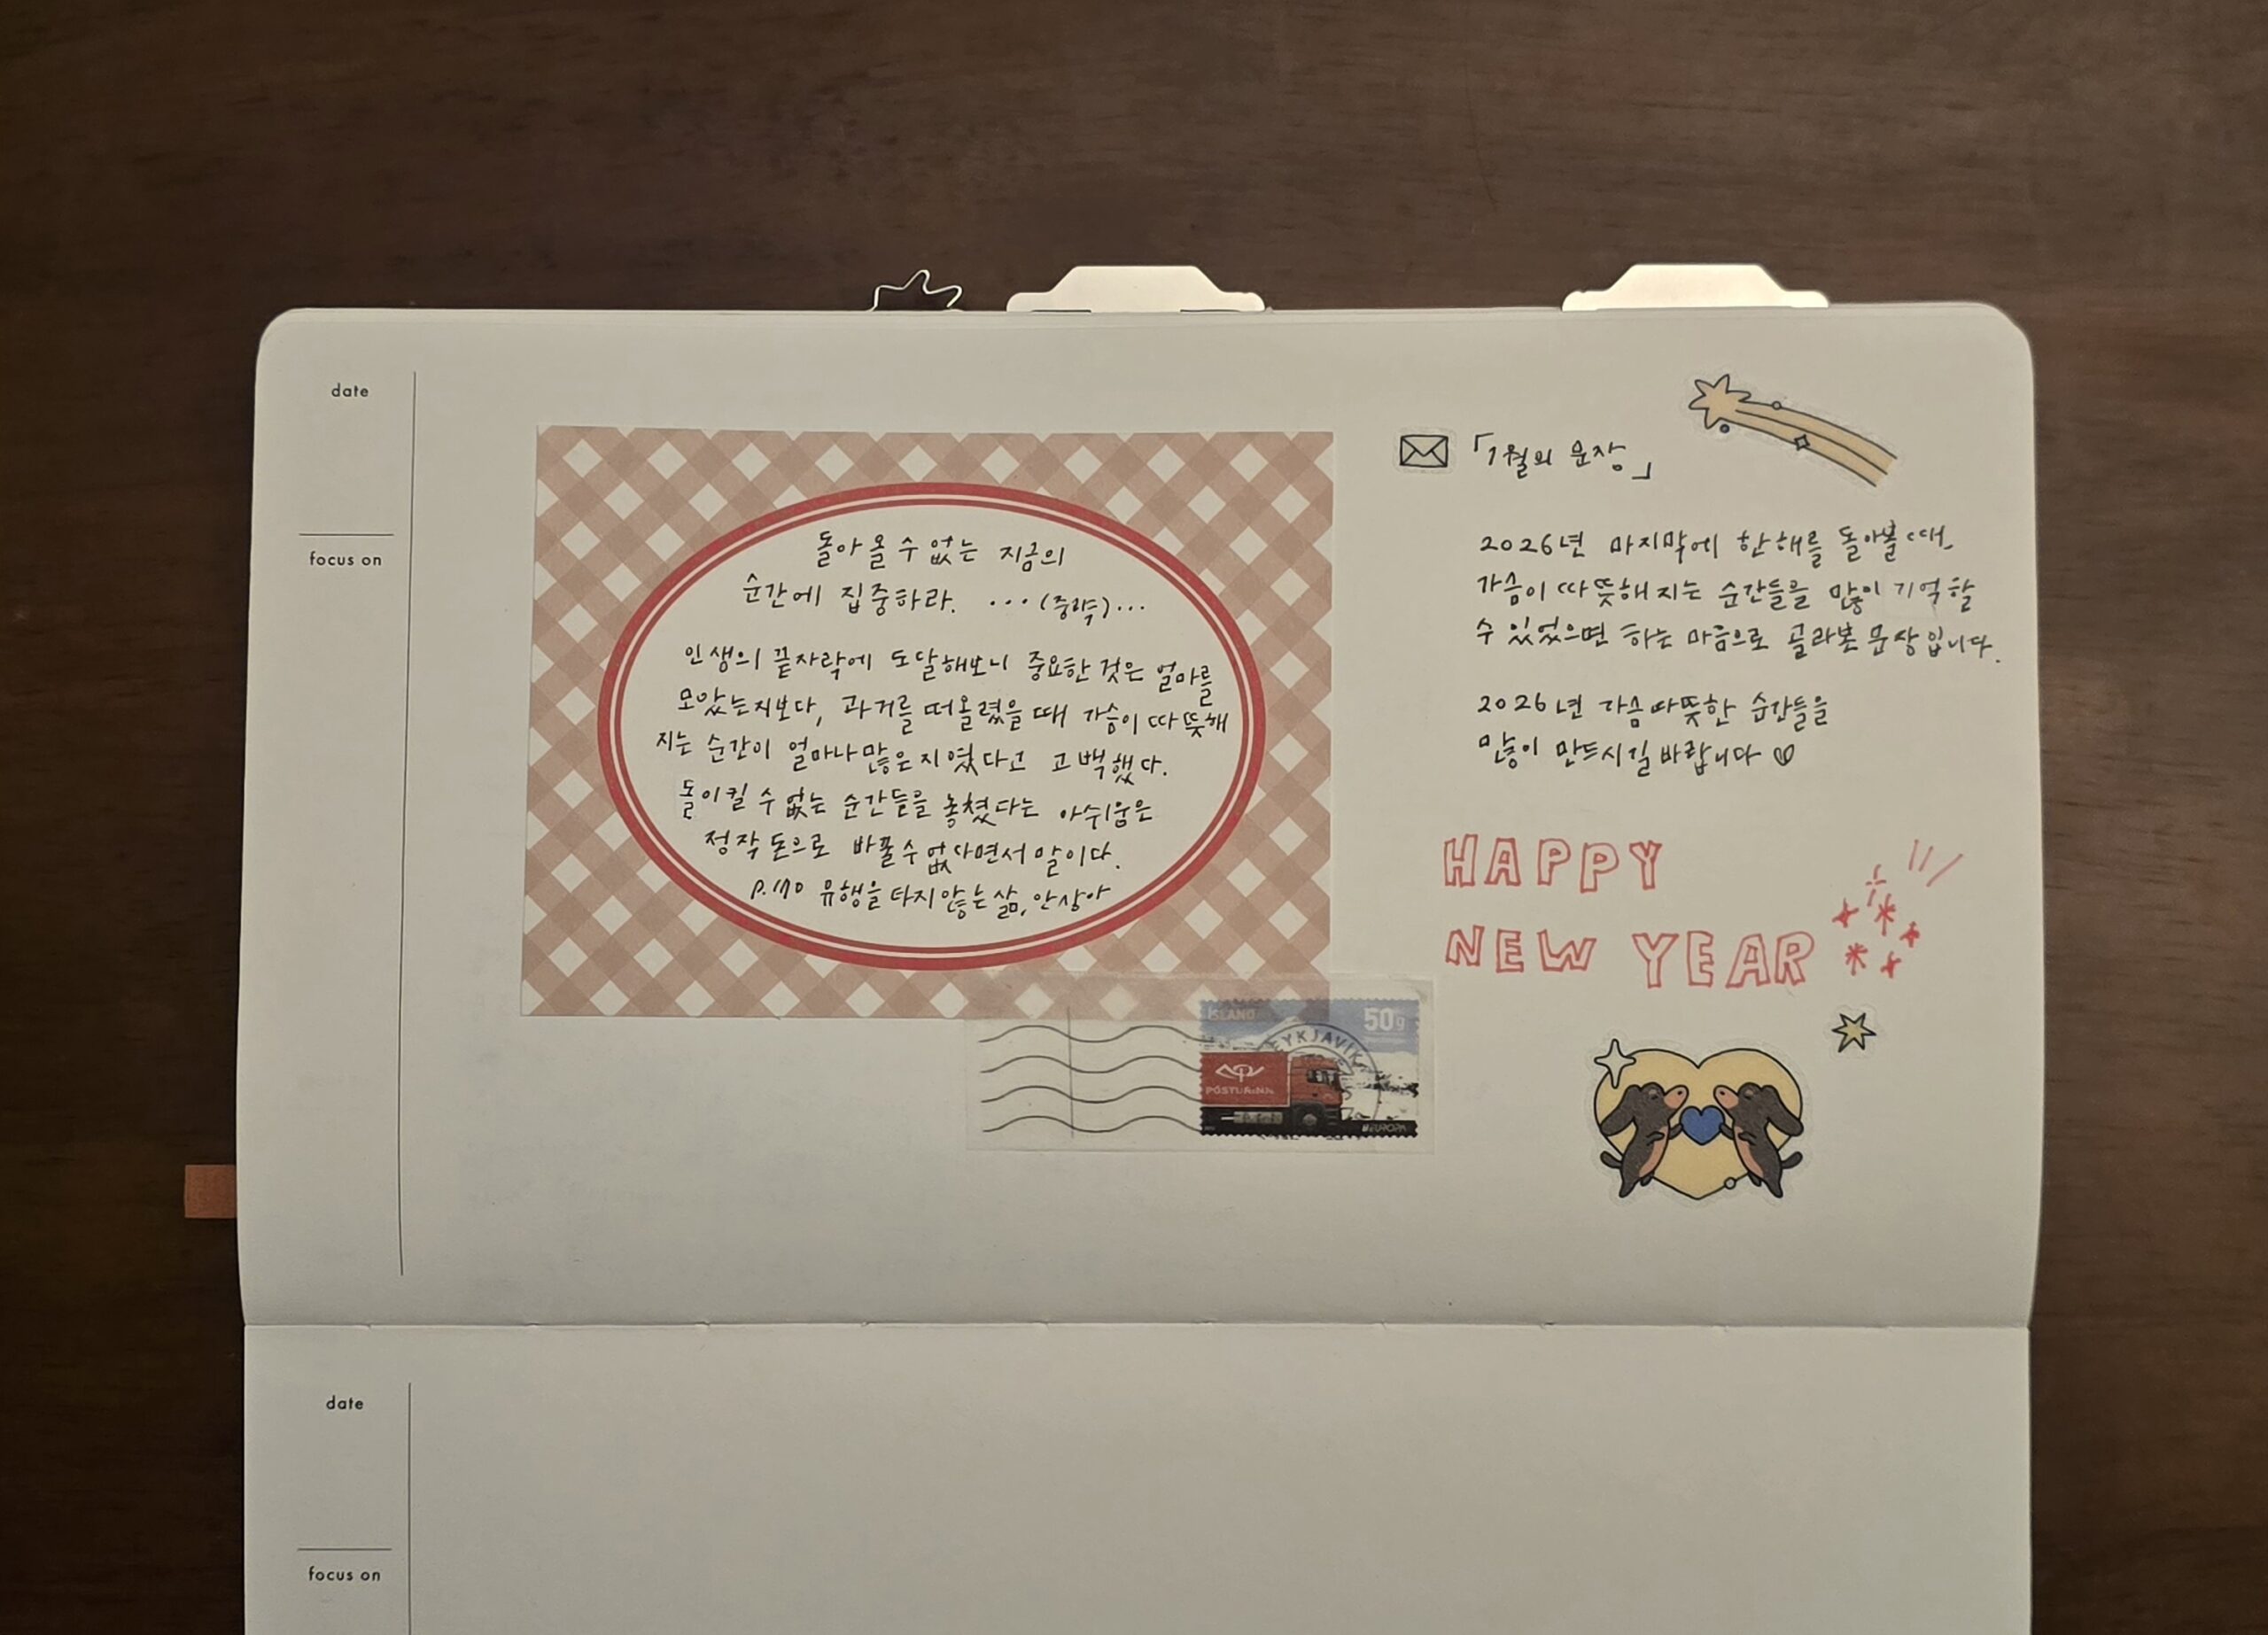 date
focus on
돌아올 수 없는 지금의
순간에 집중하라. ···(중략)···
인생의 끝자락에 도달해보니 중요한 것은 얼마를
모았는지보다, 과거를 떠올렸을 때 가슴이 따뜻해
지는 순간이 얼마나 많은지였다고 고백했다.
돌이킬 수 없는 순간들을 놓쳤다는 아쉬움은
정작 돈으로 바꿀 수 없다면서 말이다.
p.170 유행을 타지 않는 삶, 안상아
「1월의 문장」
2026년 마지막에 한해를 돌아볼 때
가슴이 따뜻해지는 순간들을 많이 기억할
수 있었으면 하는 마음으로 골라본 문장입니다.
2026년 가슴 따뜻한 순간들을
많이 만드시길 바랍니다 ♡
HAPPY
NEW YEAR
ÍSLAND
50g
REYKJAVÍK
PÓSTURINN
EUROPA
date
focus on